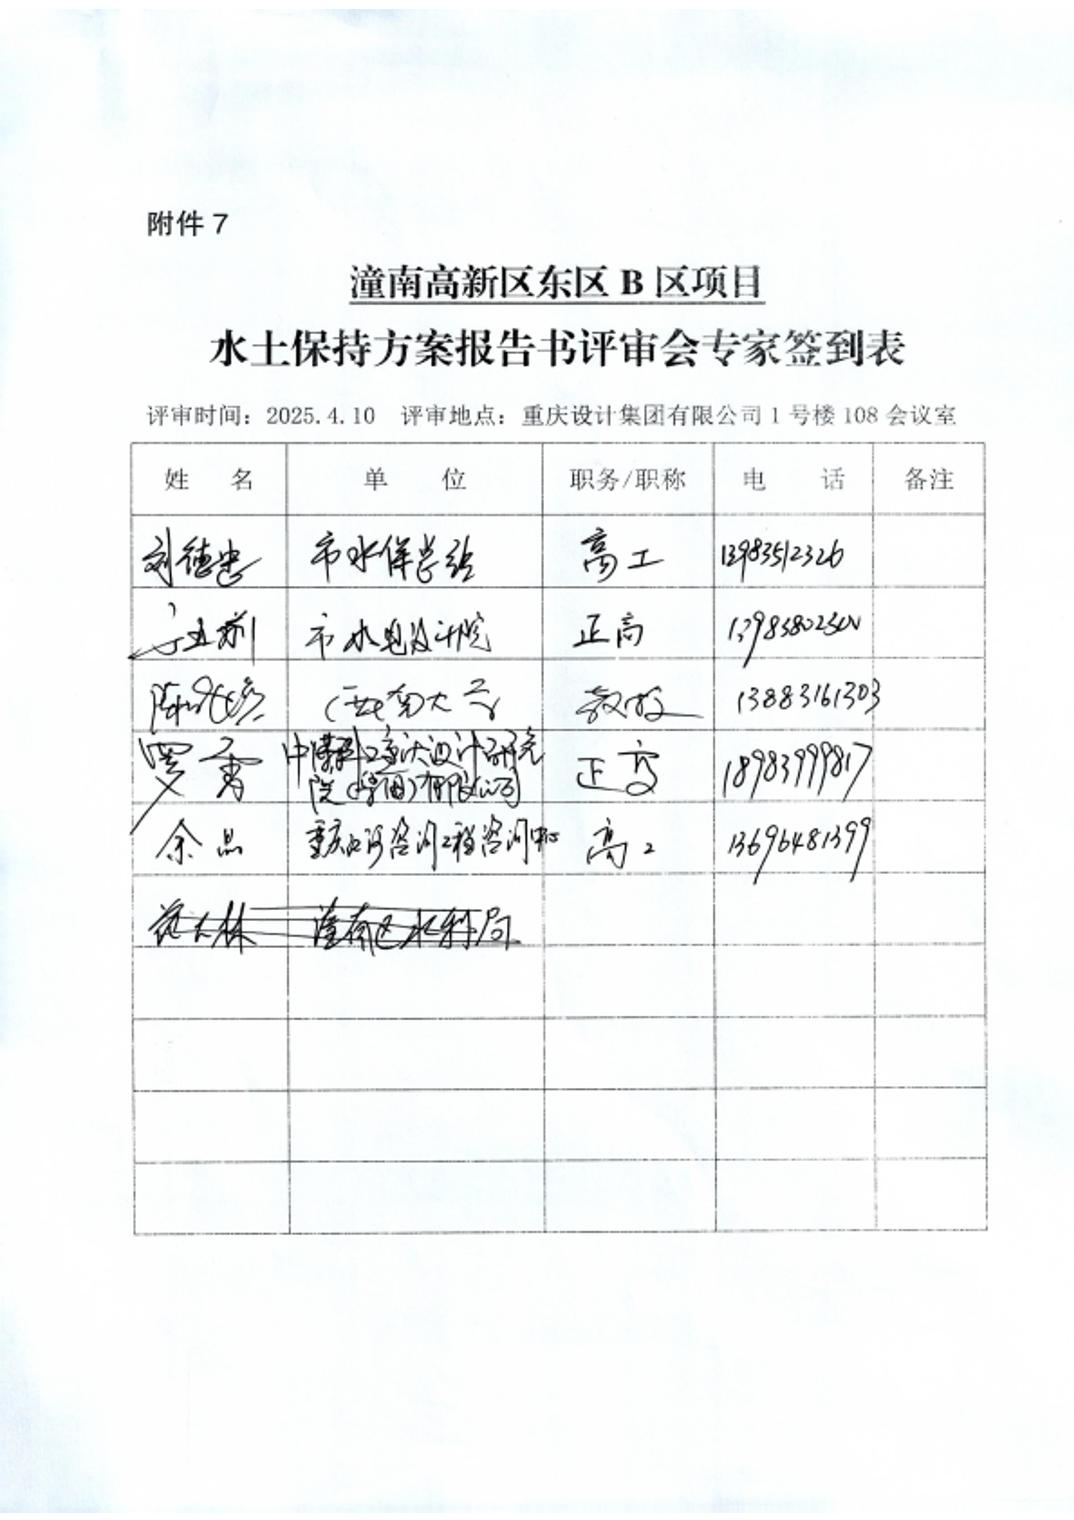 附件 7
潼南高新区东区 B 区项目
水土保持方案报告书评审会专家签到表
评审时间：2025.4.10 评审地点：重庆设计集团有限公司 1 号楼 108 会议室
姓 名 单 位 职务/职称 电 话 备注
刘德忠 市水保总站 高工 13983512326
市水电设计院 正高
陈 西南大学 教授 13883161303
罗 正高 18983999817
院 有限公司
余 咨询工程咨询中心 高工 13696481399
范大林 潼南区水利局